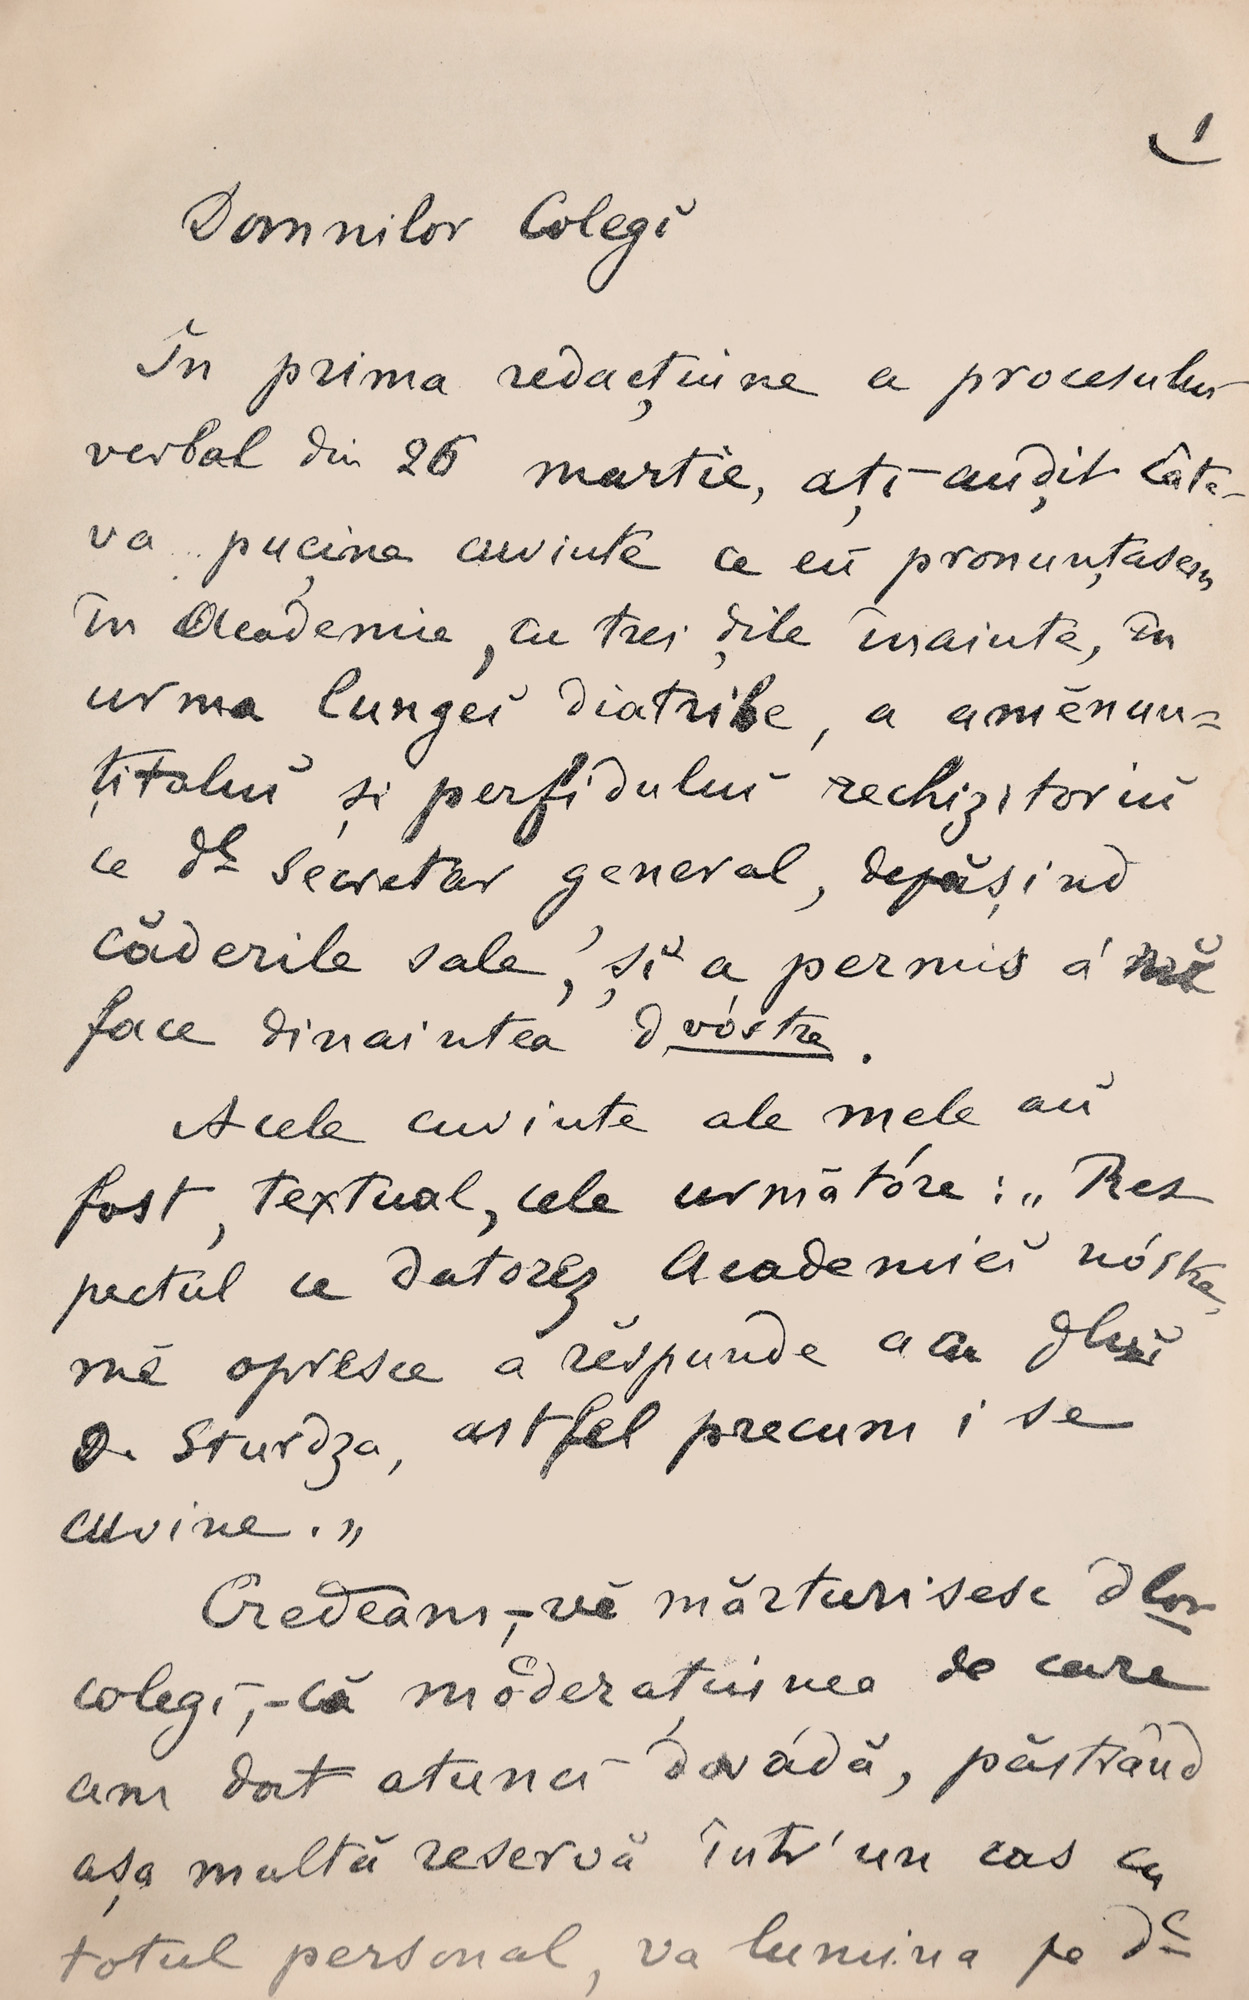 1
Domnilor Colegĭ
În prima redacțiune a procesului
verbal din 26 martie, ațĭ audit câte-
va puçine cuvinte ce eŭ pronunțasem
în Academie, cu trei ḑile înainte, în
urma lungeĭ diatribe, a amĕnun=
țituluĭ și perfiduluĭ rechizitoriŭ
ce dl secretar general, depășind
căderile sale, șĭ a permis a'
face dinaintea dvóstre.
Acele cuvinte ale mele aŭ
fost, textual, cele următóre: „Res
pectul ce datorez Academieĭ nóstre,
mĕ opresce a rĕspunde dluĭ
D. Sturdza, astfel precum i se
cuvine."
Credeam,-vĕ mărturisesc dlor
colegĭ,-că moderațiunea de care
am dat atuncĭ dovádă, păstrând
așa multă reservă într'un cas cu
totul personal, va lumina pe dl